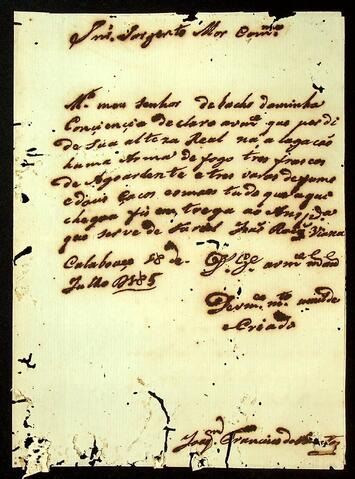 Snr. Sargento Mor Comte.
Mto. meu senhor de bacho da minha
Conciençia declaro a vmce. que perdi
de Sua alteza Real na alagação
huma Arma de fogo tres frascos
de Agoardente e tres varas de fumo
e dois Sacos e o mais tudo que aqui
chegou fis emtrega ao
que serve de Fiel João Roiz. Vianna
Calabouço 18 de
Julho 1805
De Vmce. mto.
e Criado
Joaqm. Francisco do